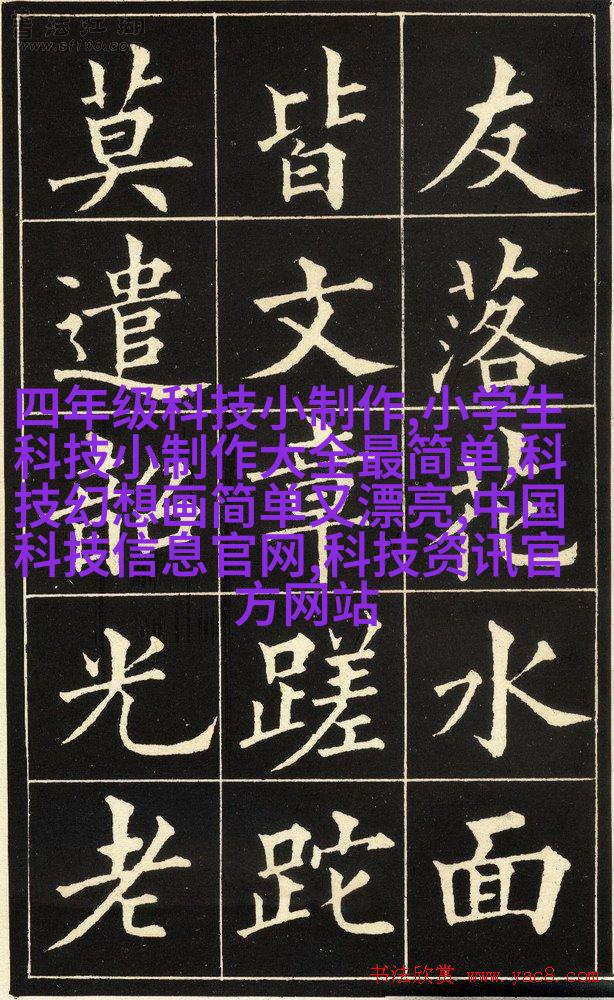 书法江湖
www.sf108.com
友落花水面
皆文章蹉跎
莫遣光老
四年级科技小制作,小学生
科技小制作大全最简单,科
技幻想画简单又漂亮,中国
科技信息官网,科技资讯官
方网站
书法欣赏 www.yac8.com